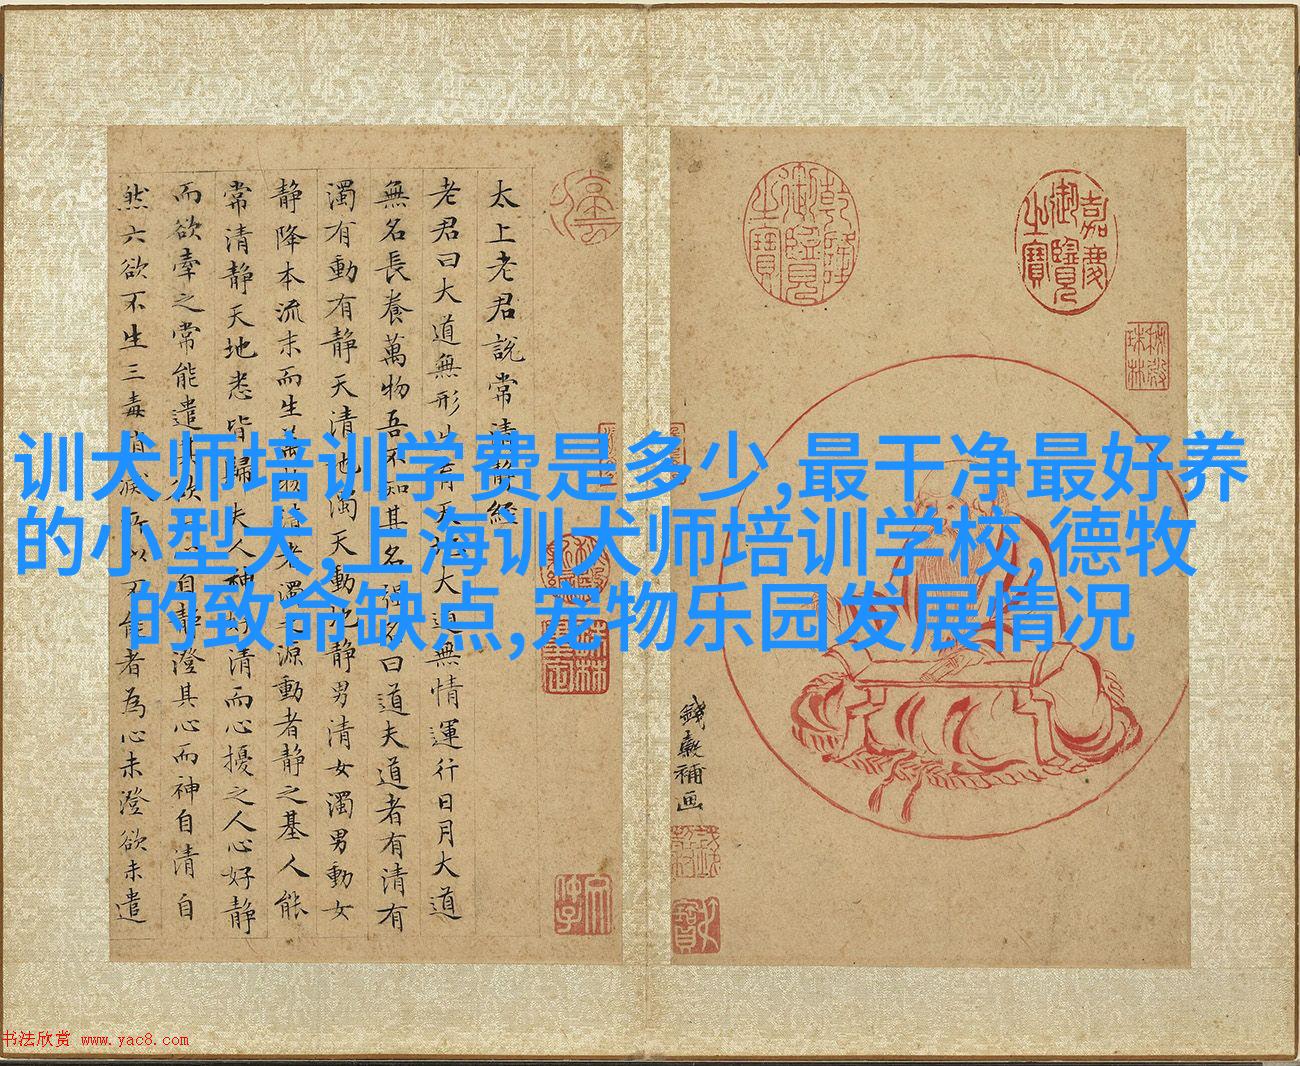 训犬师培训学费是多少,最干净最好养
的小型犬,上海训犬师培训学校,德牧
的致命缺点,宠物乐园发展情况
嘉慶御覽之寶
乾隆御覽之寶
錢穀補画
太上老君說常清静經
老君曰大道無形生育天地大道無情運行日月大道
無名長養萬物吾不知其名强名曰道夫道者有清有
濁有動有静天清地濁天動地静男清女濁男動女
静降本流末而生萬物清者濁之源動者静之基人能
常清静天地悉皆歸夫人神好清而心擾之人心好静
而欲牽之常能遣其欲而心自静澄其心而神自清自
然六欲不生三毒消滅所以不能者為心未澄欲未遣
书法欣赏 www.yac8.com